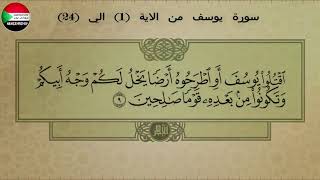 سورة يوسف من الاية (1) الي (24)
اقْتُلُوا يُوسُفَ أَوِ اطْرَحُوهُ أَرْضًا يَخْلُ لَكُمْ وَجْهُ أَبِيكُمْ
وَتَكُونُوا مِنْ بَعْدِهِ قَوْمًا صَالِحِينَ ٩